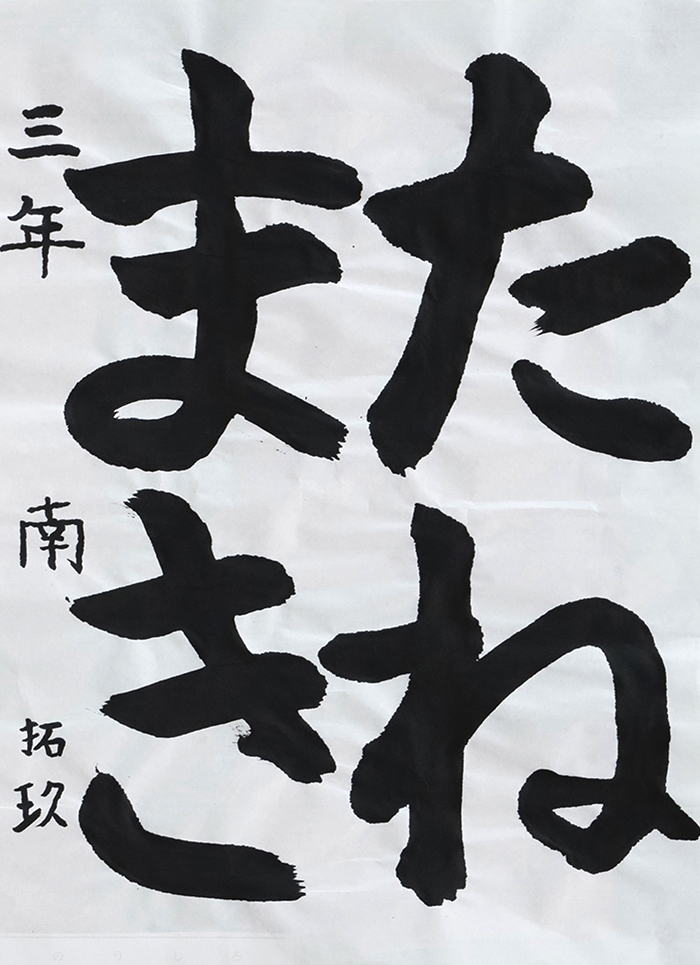 たね
まき
三年 南 拓玖